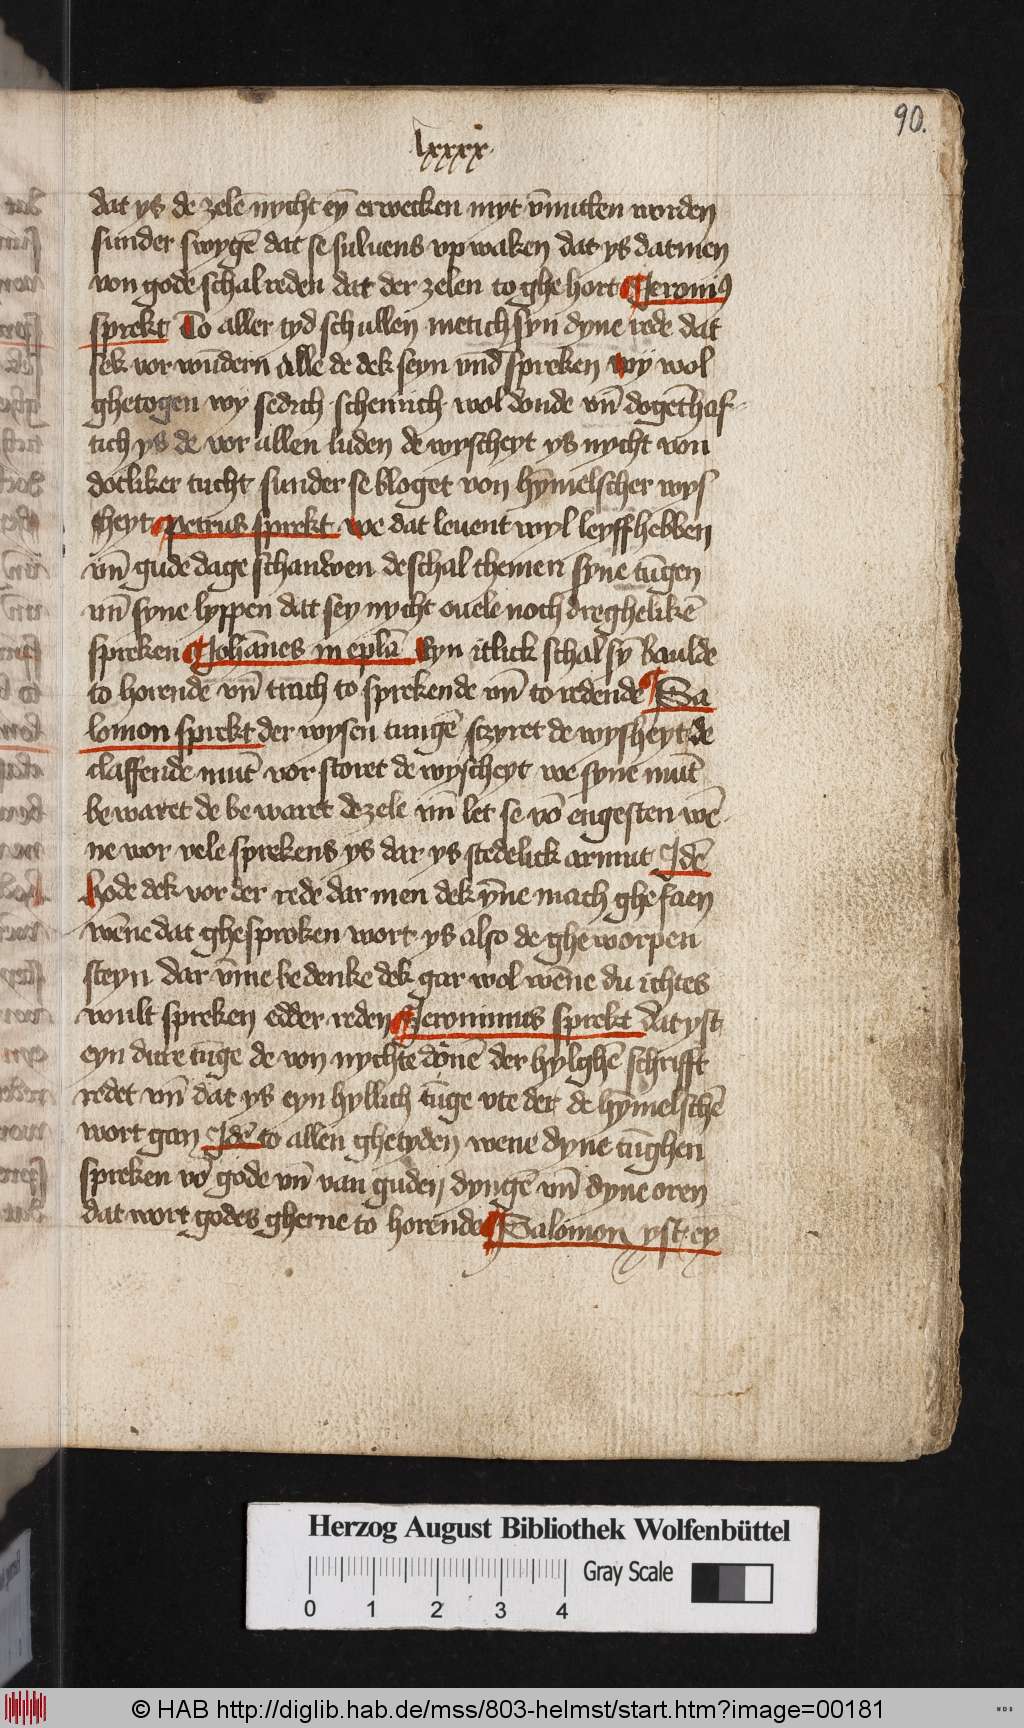 90.
lxxxx
dat ys de zelē nycht eȳ erwecken myt v̄nutten worden
sunder swygē dat se suluens vp waken dat ys dat men
von gode schal reden dat der zelen to ghe hort ¶ Jeronių
sprekt To aller tyd schullen metich syn dyne rede dat
sek vor wūdern Alle de dek seyn vnd̄ spreken wy wol
ghetogen wy sedich schemich wol donde vn̄ dogēthaf
tich ys de vor allen luden de wyscheyt ys nycht von
dotliker tucht sunder se bloget von hȳmelscher wys
cheyt ¶ Petrus sprekt we dat leuent wyl leyff hebben
vn̄ gude dage schauwen de schal themen syne tūgen
vn̄ syne lyppen dat sey nycht ouele noch dreghelikē
spreken ¶ Johānes in eplā Eyn itlick schal sȳ baulde
to horende vn̄ trach to sprekende vn̄ to redende ¶ Sa
lomon sprekt der wysen tungē sczyret de wysheyt de
claffende mūt vor storet de wyscheyt we syne mūt
be waret de be waret de zele vn̄ let se vō engesten wē
ne wor vele sprekens ys dar ys stedelick armut Jdē
hode dek vor der rede dar men dek ȳne mach ghe faen
wēne dat ghesproken wort ys also de ghe worpen
steyn dar v̄me be denke dek gar wol wēne du ichtes
wult spreken edder reden ¶ Jeronimus sprekt dat yst
eyn dure tūge de von nychte donē der hylghē schrifft
redet vn̄ dat ys eyn hyllich tūge vte der de hȳmelschē
wort gan Jdē to allen ghetyden wene dyne tūghen
spreken vō gode vn̄ van guden dyngē vn̄ dyne oren
dat wort godes gherne to horende ¶ Salomon yst ey
Herzog August Bibliothek Wolfenbüttel
Gray Scale
0 1 2 3 4
© HAB http://diglib.hab.de/mss/803-helmst/start.htm?image=00181